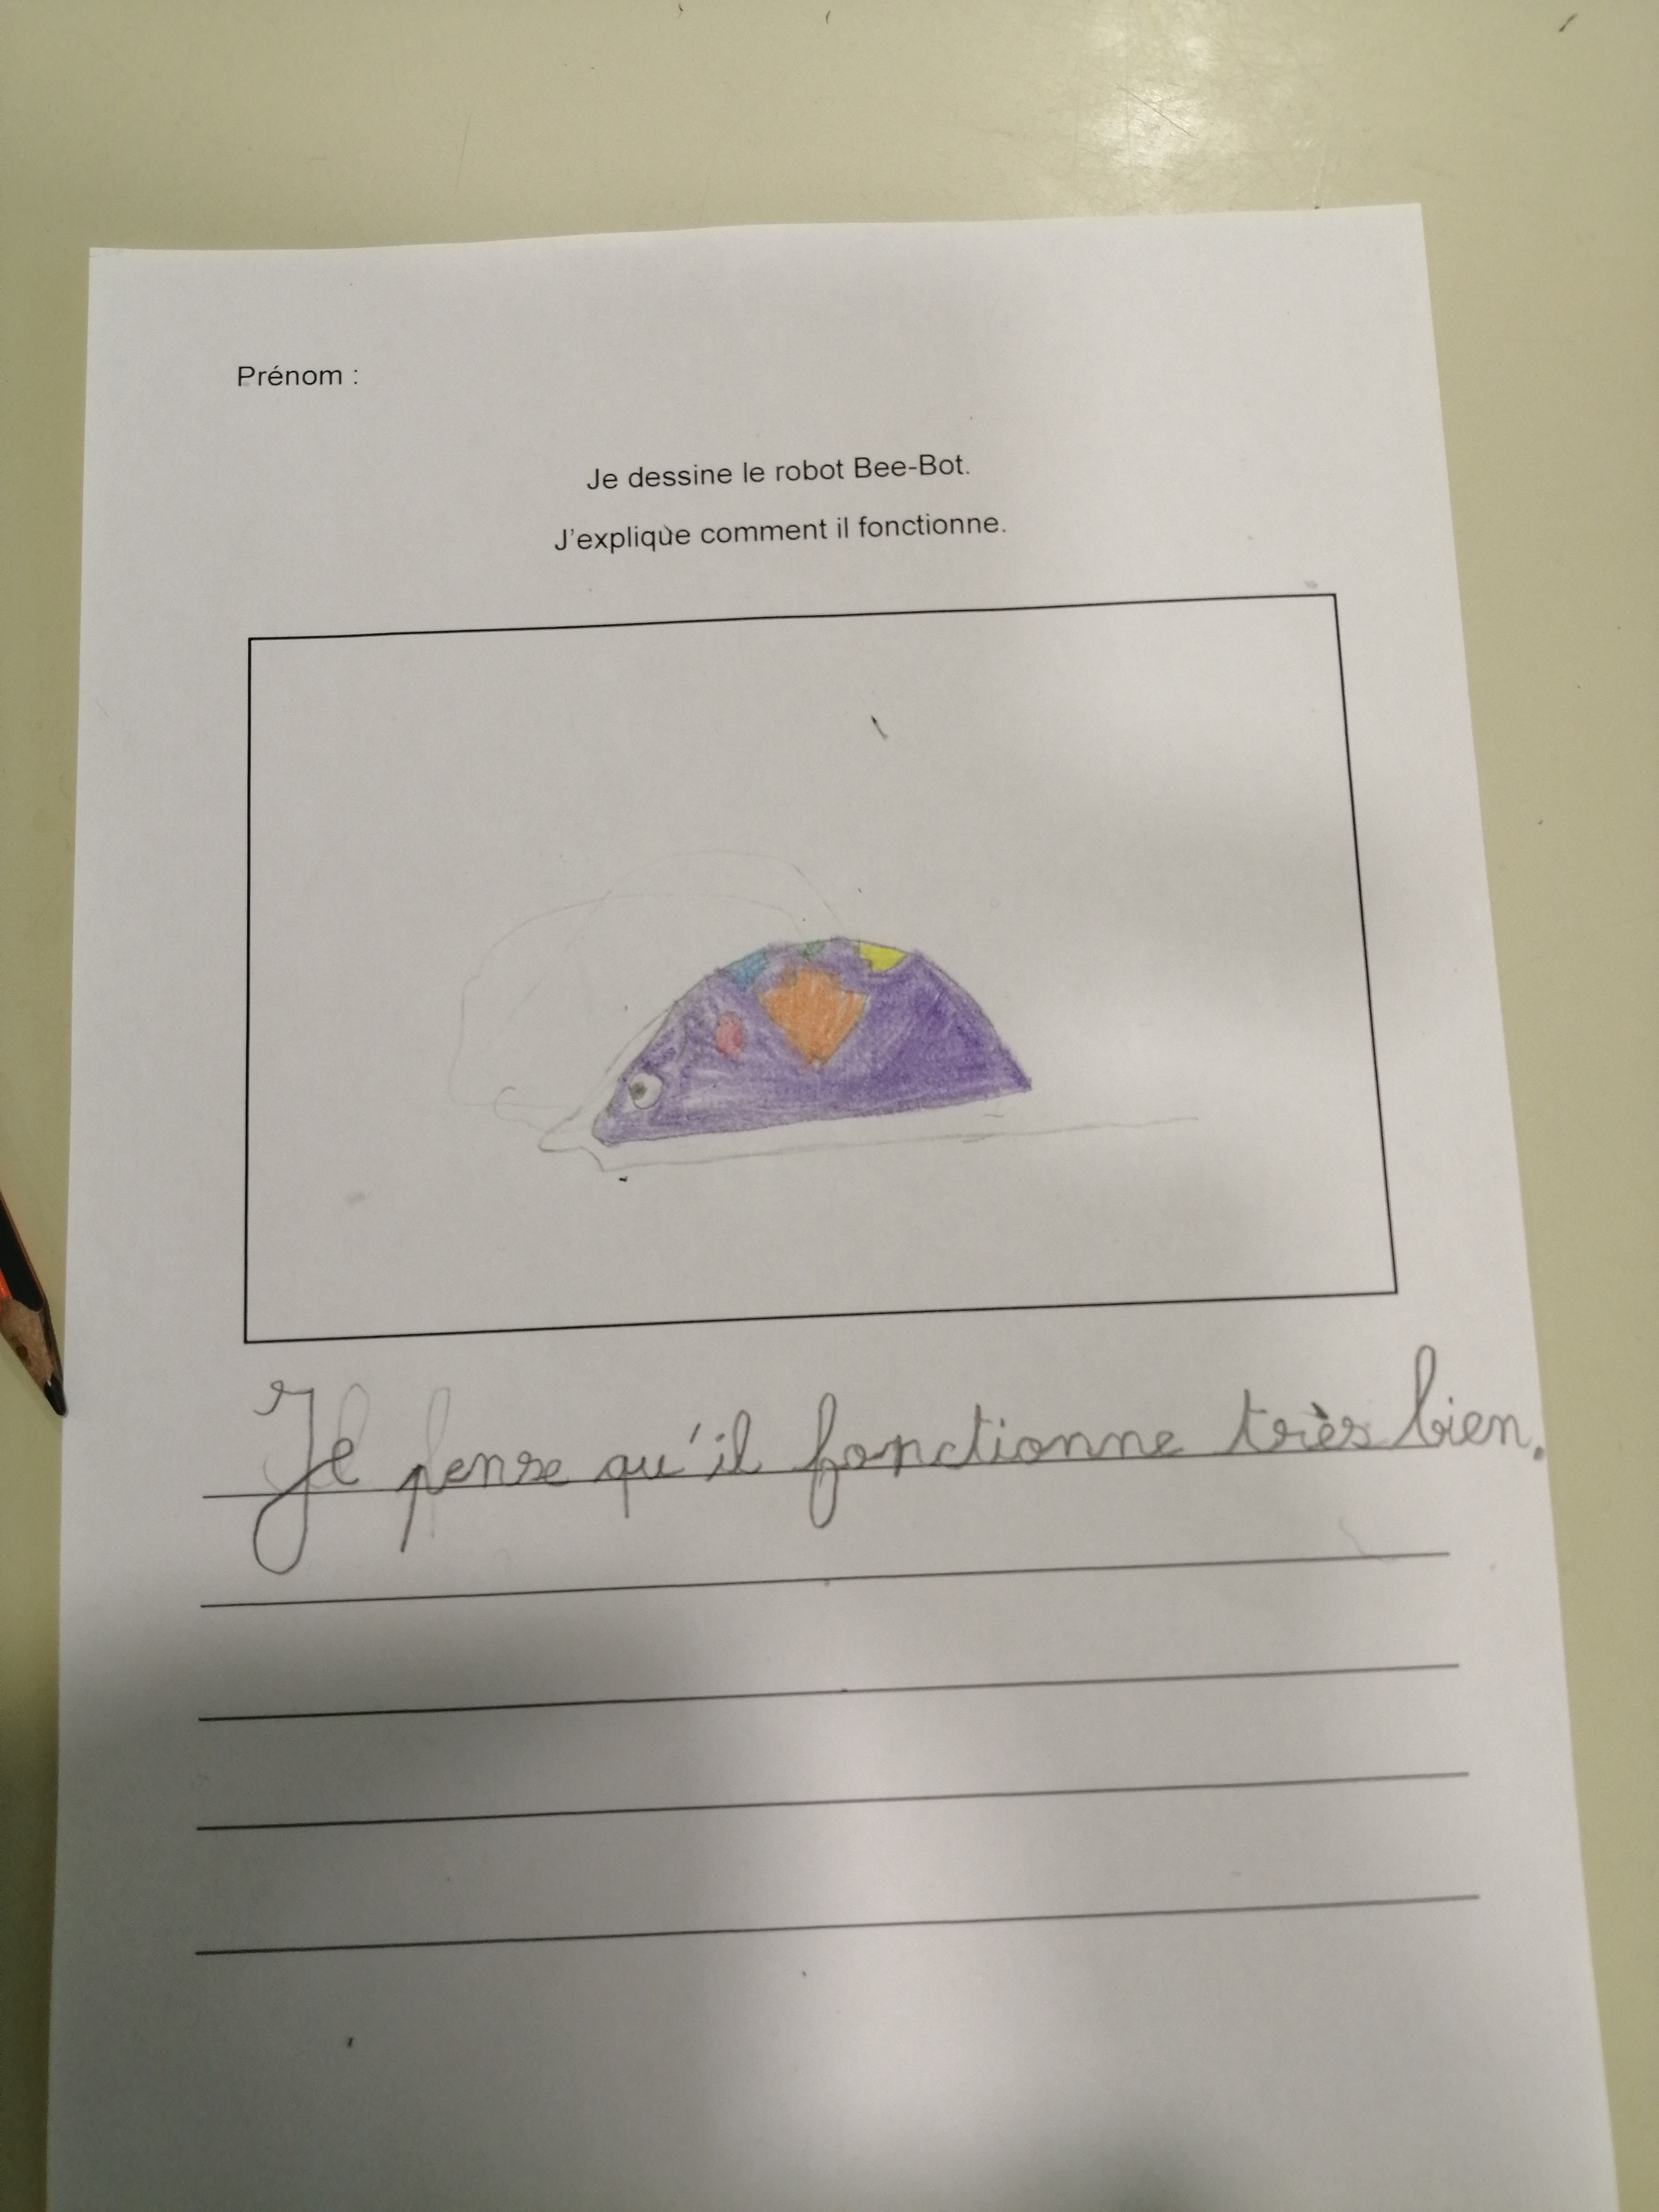 Prénom :
Je dessine le robot Bee-Bot.
J'explique comment il fonctionne.
Je pense qu'il fonctionne très bien.